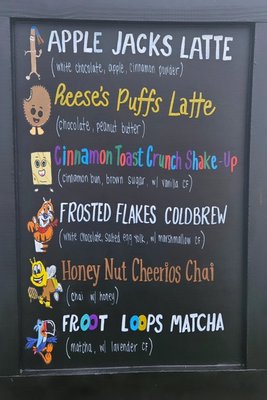 APPLE JACKS LATTE
(white chocolate, apple, cinnamon powder)
Reese's Puffs Latte
(chocolate, peanut butter)
Cinnamon Toast Crunch Shake-Up
(cinnamon bun, brown sugar, w/ vanilla CF)
FROSTED FLAKES COLDBREW
(white chocolate, salted egg yolk, w/ marshmallow CF)
Honey Nut Cheerios Chai
(chai w/ honey)
FROOT LOOPS MATCHA
(matcha, w/ lavender CF)